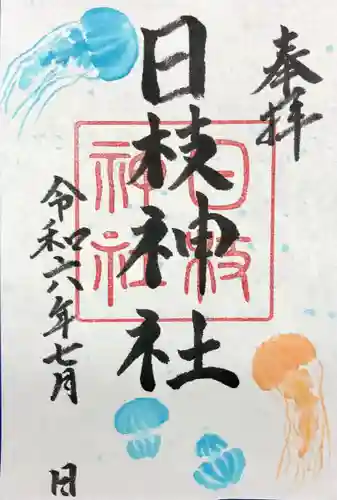 奉拝
日枝神社
日枝
神社
令和六年七月 日